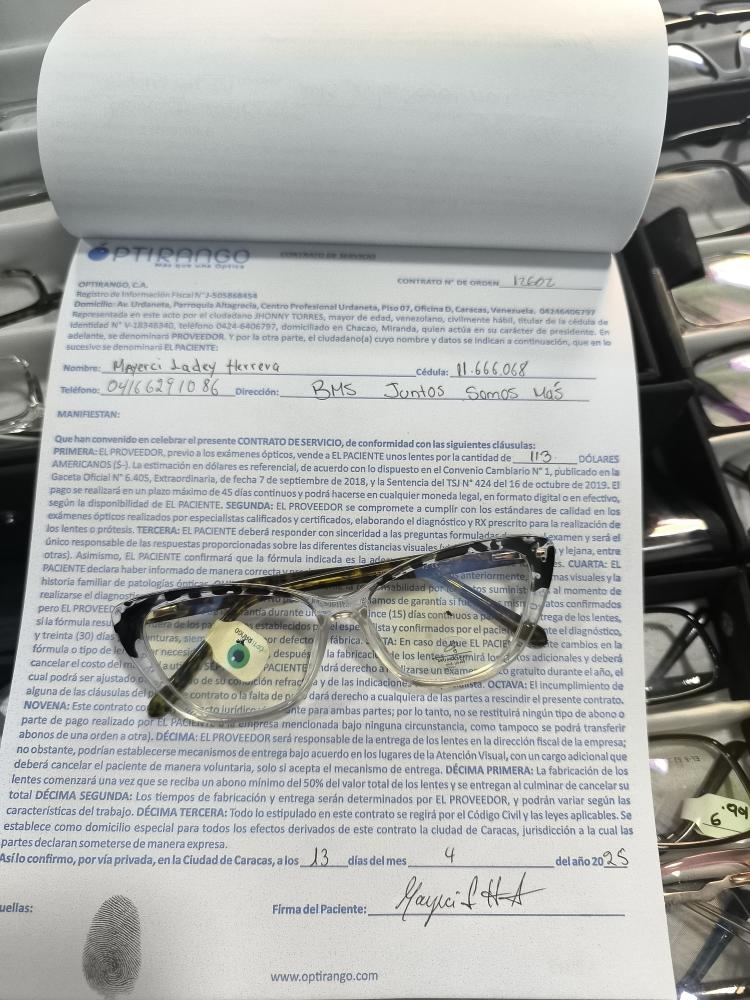 OPTIRANGO
Más que una Óptica
CONTRATO DE SERVICIO
CONTRATO N° DE ORDEN 12602
OPTIRANGO, C.A.
Registro de Información Fiscal N°J-505868454
Domicilio: Av. Urdaneta, Parroquia Altagracia, Centro Profesional Urdaneta, Piso 07, Oficina D, Caracas, Venezuela. 04246406797
Representada en este acto por el ciudadano JHONNY TORRES, mayor de edad, venezolano, civilmente hábil, titular de la cédula de
Identidad N° V-18348340, teléfono 0424-6406797, domiciliado en Chacao, Miranda, quien actúa en su carácter de presidente. En
adelante, se denominará PROVEEDOR. Y por la otra parte, el ciudadano(a) cuyo nombre y datos se indican a continuación, que en lo
sucesivo se denominará EL PACIENTE:
Nombre: Mayerci Ladey Herrera Cédula: 11.666.068
Teléfono: 04166291086 Dirección: BMS Juntos Somos Más
MANIFIESTAN:
Que han convenido en celebrar el presente CONTRATO DE SERVICIO, de conformidad con las siguientes cláusulas:
PRIMERA: EL PROVEEDOR, previo a los exámenes ópticos, vende a EL PACIENTE unos lentes por la cantidad de 113 DÓLARES
AMERICANOS ($-). La estimación en dólares es referencial, de acuerdo con lo dispuesto en el Convenio Cambiario N° 1, publicado en la
Gaceta Oficial N° 6.405, Extraordinaria, de fecha 7 de septiembre de 2018, y la Sentencia del TSJ N° 424 del 16 de octubre de 2019. El
pago se realizará en un plazo máximo de 45 días continuos y podrá hacerse en cualquier moneda legal, en formato digital o en efectivo,
según la disponibilidad de EL PACIENTE. SEGUNDA: EL PROVEEDOR se compromete a cumplir con los estándares de calidad en los
exámenes ópticos realizados por especialistas calificados y certificados, elaborando el diagnóstico y RX prescrito para la realización de
los lentes o prótesis. TERCERA: EL PACIENTE deberá responder con sinceridad a las preguntas formuladas examen y será el
único responsable de las respuestas proporcionadas sobre las diferentes distancias visuales y lejana, entre
otras). Asimismo, EL PACIENTE confirmará que la fórmula indicada es la CUARTA: EL
PACIENTE declara haber informado de manera correcta y anteriormente, visuales y la
historia familiar de patologías al momento de
realizarse el amos de garantía si confirmados
pero EL durante entrega de lentes,
si la fórmula establecidos y confirmados por el el diagnóstico,
y treinta (30) por defecto fábrica. En caso de que EL cambios en la
fórmula o tipo de después la fabricación de los lentes, los adicionales y deberá
cancelar el costo del PACIENTE derecho a un gratuito durante el año, el
cual podrá ser ajustado su condición y de las indicaciones OCTAVA: El incumplimiento de
alguna de las cláusulas del contrato o la falta de dará derecho a cualquiera de las partes a rescindir el presente contrato.
NOVENA: Este contrato para ambas partes; por lo tanto, no se restituirá ningún tipo de abono o
parte de pago realizado por EL PACIENTE empresa mencionada bajo ninguna circunstancia, como tampoco se podrá transferir
abonos de una orden a otra). DÉCIMA: EL PROVEEDOR será responsable de la entrega de los lentes en la dirección fiscal de la empresa;
no obstante, podrían establecerse mecanismos de entrega bajo acuerdo en los lugares de la Atención Visual, con un cargo adicional que
deberá cancelar el paciente de manera voluntaria, solo si acepta el mecanismo de entrega. DÉCIMA PRIMERA: La fabricación de los
lentes comenzará una vez que se reciba un abono mínimo del 50% del valor total de los lentes y se entregan al culminar de cancelar su
total DÉCIMA SEGUNDA: Los tiempos de fabricación y entrega serán determinados por EL PROVEEDOR, y podrán variar según las
características del trabajo. DÉCIMA TERCERA: Todo lo estipulado en este contrato se regirá por el Código Civil y las leyes aplicables. Se
establece como domicilio especial para todos los efectos derivados de este contrato la ciudad de Caracas, jurisdicción a la cual las
partes declaran someterse de manera expresa.
Así lo confirmo, por vía privada, en la Ciudad de Caracas, a los 13 días del mes 4 del año 2025
uellas:
Firma del Paciente:
www.optirango.com
6.99